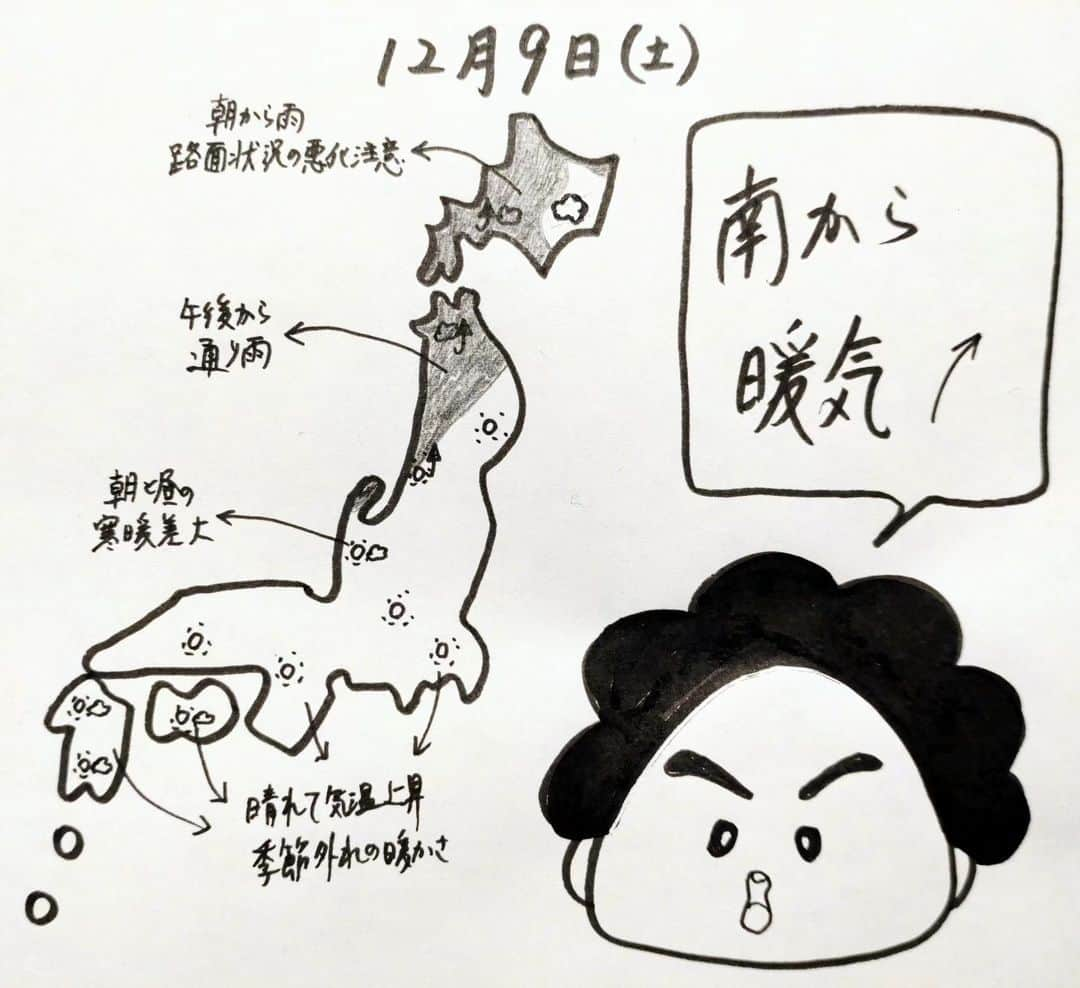 12月9日(土)
朝から雨
路面状況の悪化注意
南から
暖気
午後から
通り雨
朝と昼の
寒暖差大
晴れて気温上昇
季節外れの暖かさ